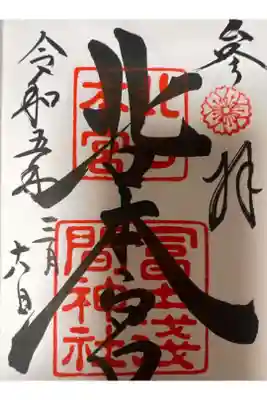 参拝
北口本宮
北口
本宮
冨士浅
間神社
令和五年
三月
六日